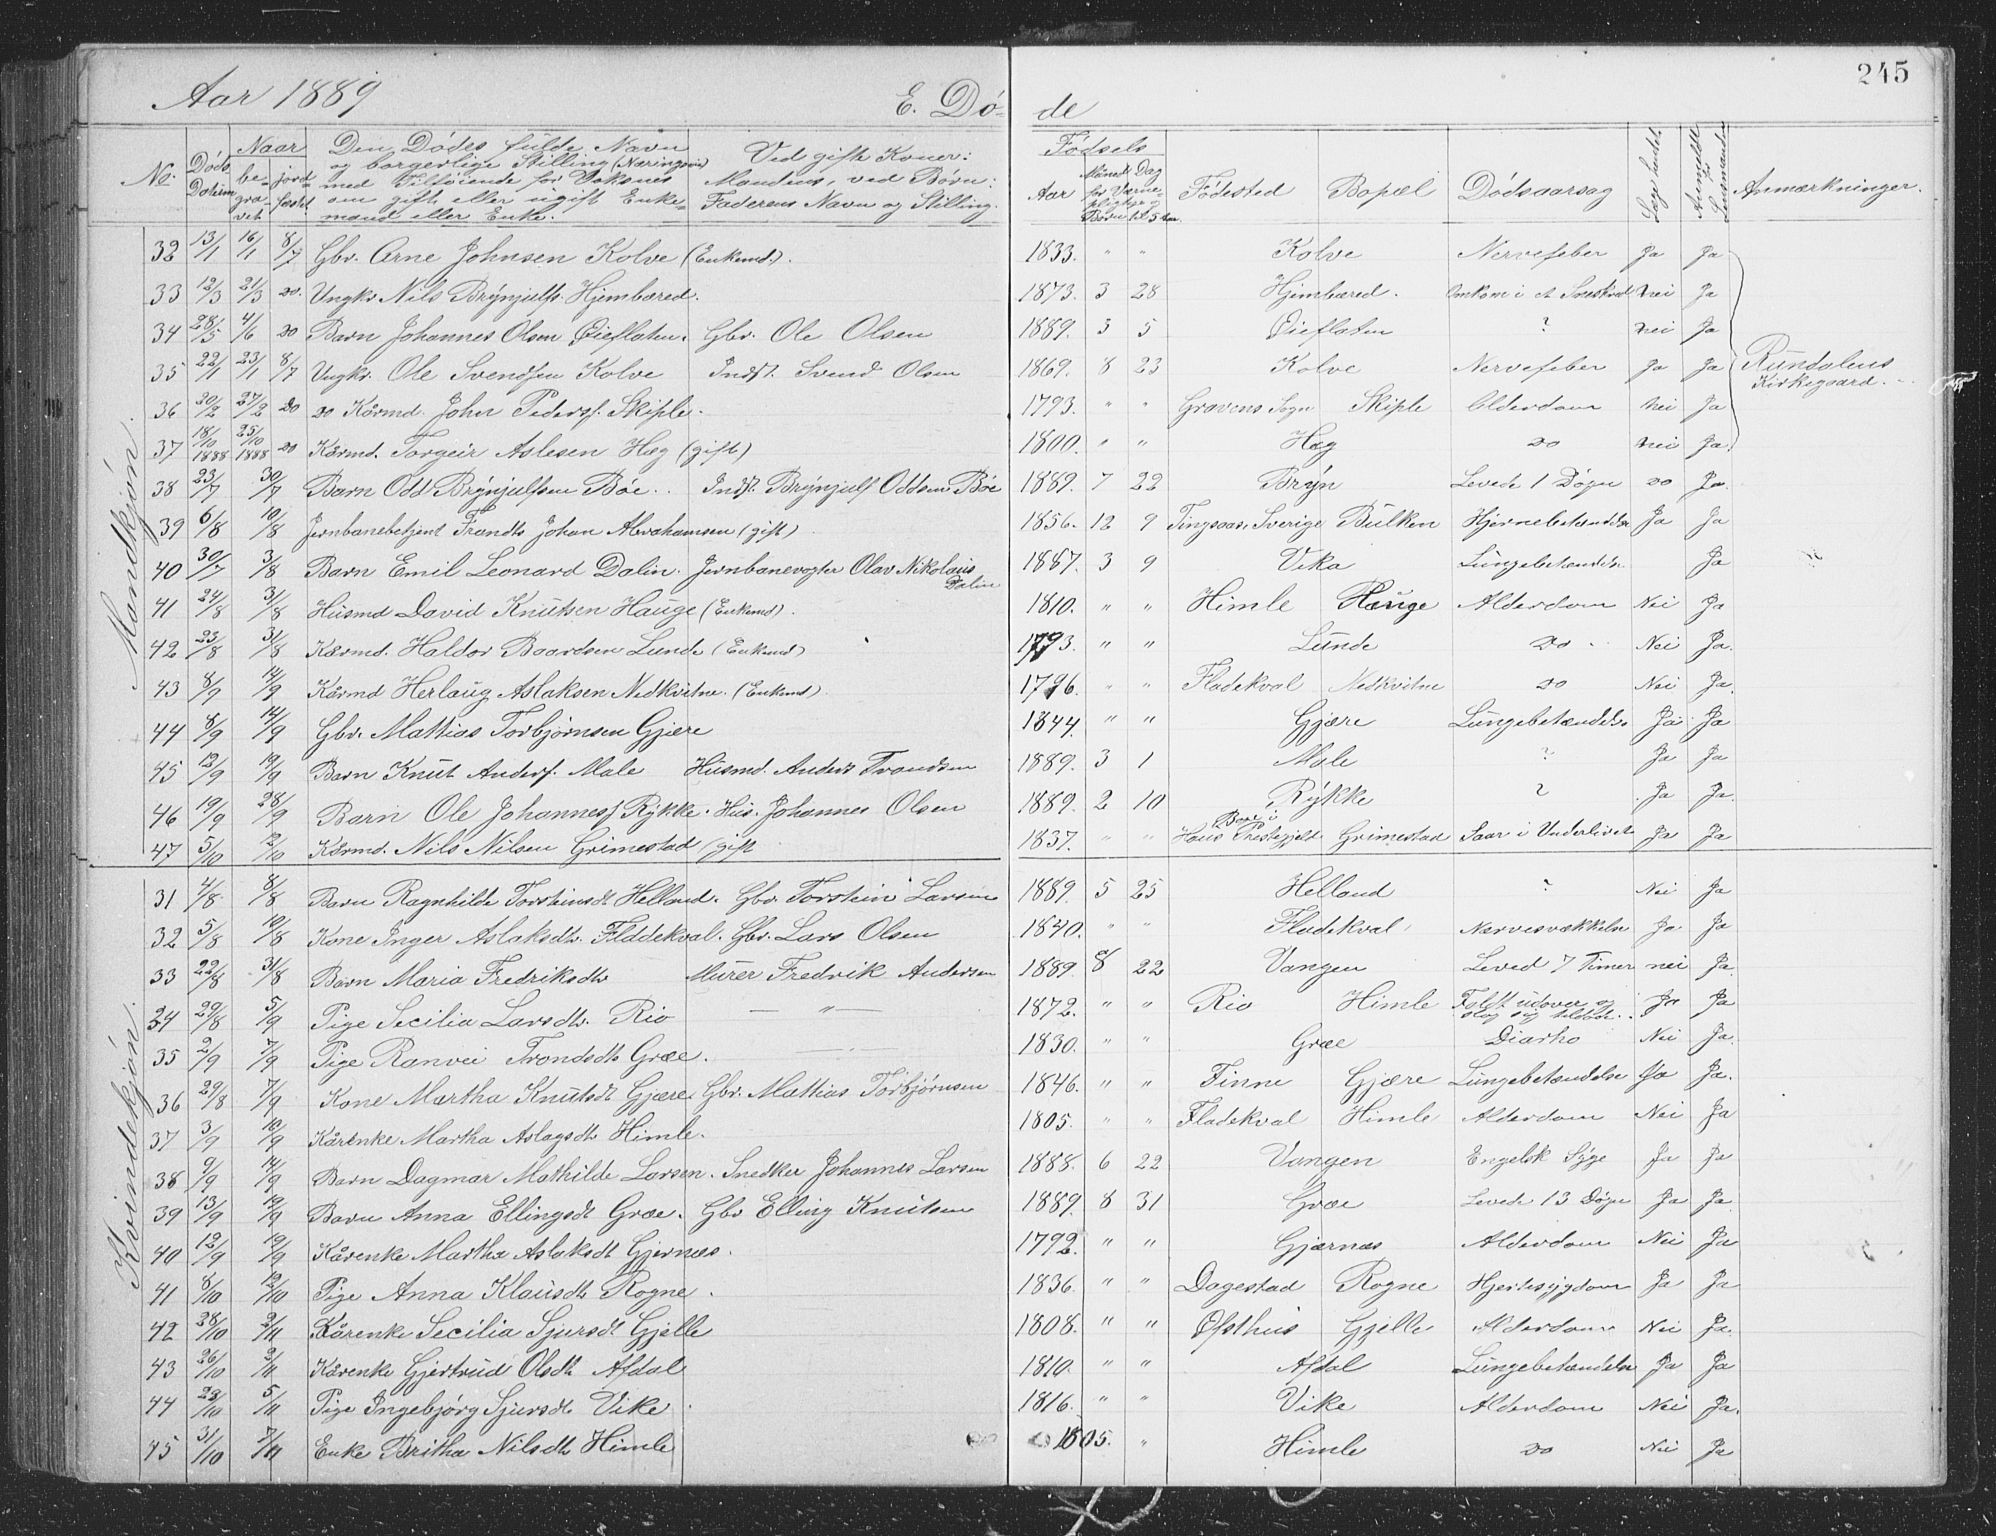 Aar 1889 E. Dø- de 245
No. Døds Datum Naar be- gra- vet jord- fæstet Den Dødes fulde Navn og borgerlige Stilling (Næringsvei) med Tilføiende for Voksnes om gift eller ugift Enke- mand eller Enke. Ved gifte Koner: Mandens, ved Børn: Faderens Navn og Stilling. Fødsels Aar Maaned Dag for Værne- pligtige og Børn til 5 Aar. Fødested Bopæl Dødsaarsag Læge hentet Anmeldt for Lensmanden Anmærkninger.
Mandkjøn.
32 13/1 16/1 8/7 Gbr. Arne Johnsen Kolve (Enkemd.). 1833. " " Kolve Nervefeber Ja Ja
33 12/3 21/3 do. Ungkr. Nils Brynjulfs. Hjembæred. 1873. 3 28 Hjembæred. Omkom i et Sneskred nei Ja
34 28/5 4/6 do Barn Johannes Olsen Øieflaten. Gbr. Ole Olsen 1889. 3 5 Øieflaten ? nei Ja
35 22/1 23/1 8/7 Ungkr. Ole Svendsen Kolve Indst. Svend Olsen 1869. 8 23 Kolve Nervefeber Ja Ja Rundalens Kirkegaard.
36 20/2 27/2 do do Kårmd. John Peders. Skiple. 1793. " " Gravens Sogn Skiple Alderdom nei Ja
37 18/10 1888 25/10 1888 do Kårmd. Torgeir Aslesen Hæg (gift) 1800. " " Hæg do nei Ja
38 23/7 30/7 Barn Odd Brynjulfsen Bøe. Indst. Brynjulf Oddsen Bøe 1889. 7 22 Bryn Levede 1 Døgn do Ja
39 6/8 10/8 Jernbanebetjent Frandts Johan Abrahamsen (gift). 1856. 12 9 Tingsaas, Sverige Bulken Hjernebetændelse Ja Ja
40 30/7 3/8 Barn Emil Leonard Dalin. Jernbanevogter Olav Nikolaus Dalin 1887. 3 9 Vika Lungebetændelse Ja
41 24/8 31/8 Husmd David Knutsen Hauge (Enkemd). 1810. " " Himle Hauge Alderdom Nei Ja
42 23/8 31/8 Kærmd. Haldor Baardsen Lunde (Enkemd) 1793. " " Lunde do Nei Ja.
43 8/9 14/9 Kårmd Herlaug Aslaksen Nedkvitne. (Enkemd). 1796. " " Fladekval Nedkvitne do Nei Ja.
44 8/9 14/9 Gbr. Mattias Torbjørnsen Gjære 1844. " " Gjære Lungebetændelse Ja Ja
45 12/9 19/9 Barn Knut Anders. Male Husmd. Anders Trondsen 1889. 3 1 Male ? Ja Ja
46 19/9 28/9 Barn Ole Johanness. Rykke. Hus. Johannes Olsen 1889. 2 10 Rykke ? Ja Ja.
47 5/10 2/10 Kærmd. Nils Nilsen Grimestad (gift 1837. " " Boe i Haus Prestegjeld Grimestad Saar i Underlivet Ja Ja
Kvindekjøn.
31 4/8 8/8 Barn Ragnhilde Torsteinsdt Helland. Gbr. Torstein Larsen 1889. 5 25 Helland ? Nei Ja
32 5/8 10/8 Kone Inger Aslaksdtr. Fladdekval. Gbr. Lars Olsen 1840. " " Fladekval Nervesvækkelse Ja Ja.
33 22/8 31/8 Barn Maria Fredriksdtr Murer Fredrik Andersen 1889. 8 22 Vangen Leved 7 Timer nei Ja.
34 29/8 5/9 Pige Secilia Larsdtr. Rio — " — 1872. " " Rio Himle Faldt udover og slog sig tildøde. Ja Ja
35 2/9 7/9 Pige Ranvei Trondsdtr Græe. 1830. " " Græe Diarho Nei Ja.
36 29/8 7/9 Kone Martha Knutsdt Gjære. Gbr. Mattias Torbjørnsen 1846. " " Finne Gjære Lungebetændelse Ja Ja.
37 3/9 10/9 Kårenke Martha Aslagsdtr Himle. 1805. " " Fladekval Himle Alderdom Nei Ja
38 9/9 14/9 Barn Dagmar Mathilde Larsen. Snedker Johannes Larsen 1888. 6 22 Vangen Engelsk Syge Ja Ja
39 13/9 19/9 Barn Anna Ellingsdt Græe. Gbr Elling Knutsen 1889. 8 31 Græe Levede 13 Døgn Ja Ja.
40 12/9 19/9 Kårenke Martha Aslaksdt Gjernæs. 1792. " " Gjærnæs Alderdom Nei Ja
41 8/10 12/10 Pige Anna Klausdtr Rogne. 1836. " " Dagestad Rogne Hjertesygdom Ja Ja
42 28/10 2/11 Kårenke Secilia Sjursdt Gjelle 1808. " " Øfsthus Gjelle Alderdom Nei Ja.
43 26/10 2/11 Kårenke Gjertrud Olsdtr Afdal 1810. " " Afdal Lungebetændelse Ja Ja
44 29/10 5/11 Pige Ingebjørg Sjursdtr Vike 1816. " " Vike Alderdom Nei Ja.
45 31/10 7/11 Enke Britha Nilsdtr Himle 1805. " Himle do Nei Ja